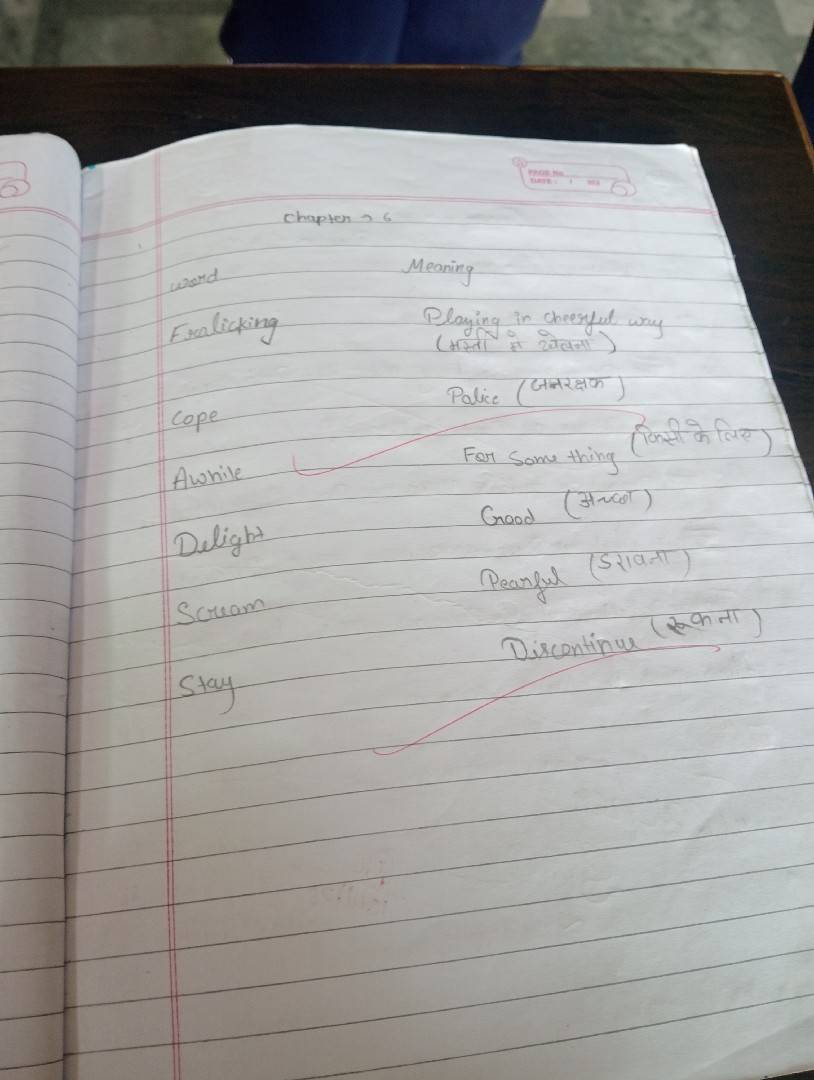 PAGE No.
DATE: / /202
Chapter → 6
word Meaning
Fralicking Playing in cheerful way
(मस्ती में खेलना)
Cope Palice (जनरक्षक)
Awhile For Some thing (किसी के लिए)
Delight Good (अच्छा)
Scream Pearful (डरावना)
Stay Discontinue (रूकना)